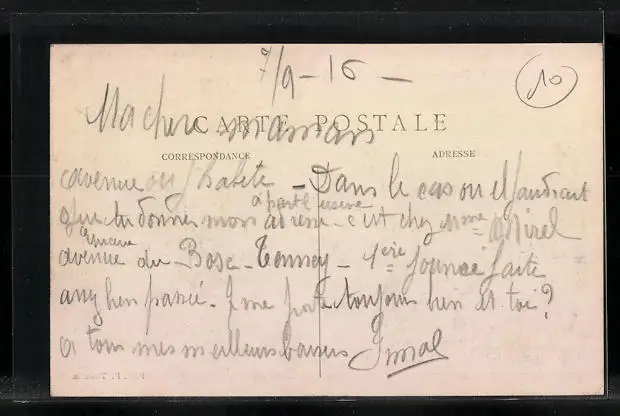 7/9-16 -
10
Ma chere maman
CARTE POSTALE
CORRESPONDANCE
ADRESSE
avenue ou j'habite - Dans le cas ou il faudrait
à part l'usine
que tu donnes mon adresse c'est chez Mme
avenue du Bosc - 1ère journée faite
assez bien passée. Je me porte toujours bien et toi?
à tous mes meilleurs baisers